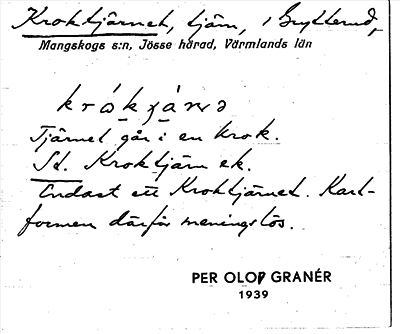 Kroktjärnet, tjärn, i Brytterud,
Mangskogs s:n, Jösse härad, Värmlands län
Tjärnet går i en krok.
Sd. Kroktjärn ek.
Endast ett Kroktjärnet. Kart-
formen därför meningslös.
PER OLOF GRANÉR
1939